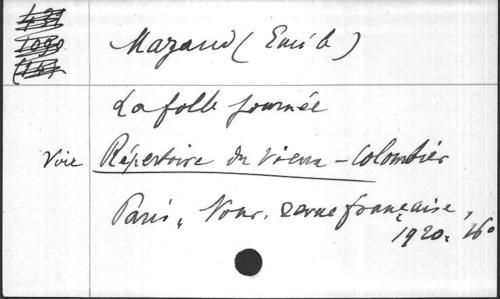 Mazaud (Emile)
La folle journée
Voir Répertoire du Vieux-Colombier
Paris, Nouv. revue française,
1920. 16°